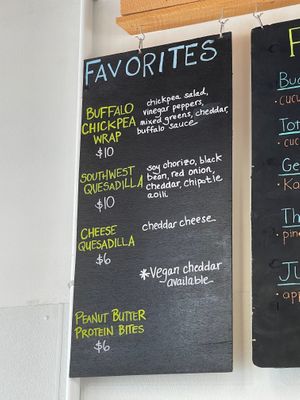 FAVORITES
BUFFALO
CHICKPEA
WRAP
$10
chickpea salad,
vinegar peppers,
mixed greens, cheddar,
buffalo sauce
SOUTHWEST
QUESADILLA
$10
soy chorizo, black
bean, red onion,
cheddar, chipotle
aoili.
CHEESE
QUESADILLA
$6
cheddar cheese
*Vegan cheddar
available
PEANUT BUTTER
PROTEIN BITES
$6